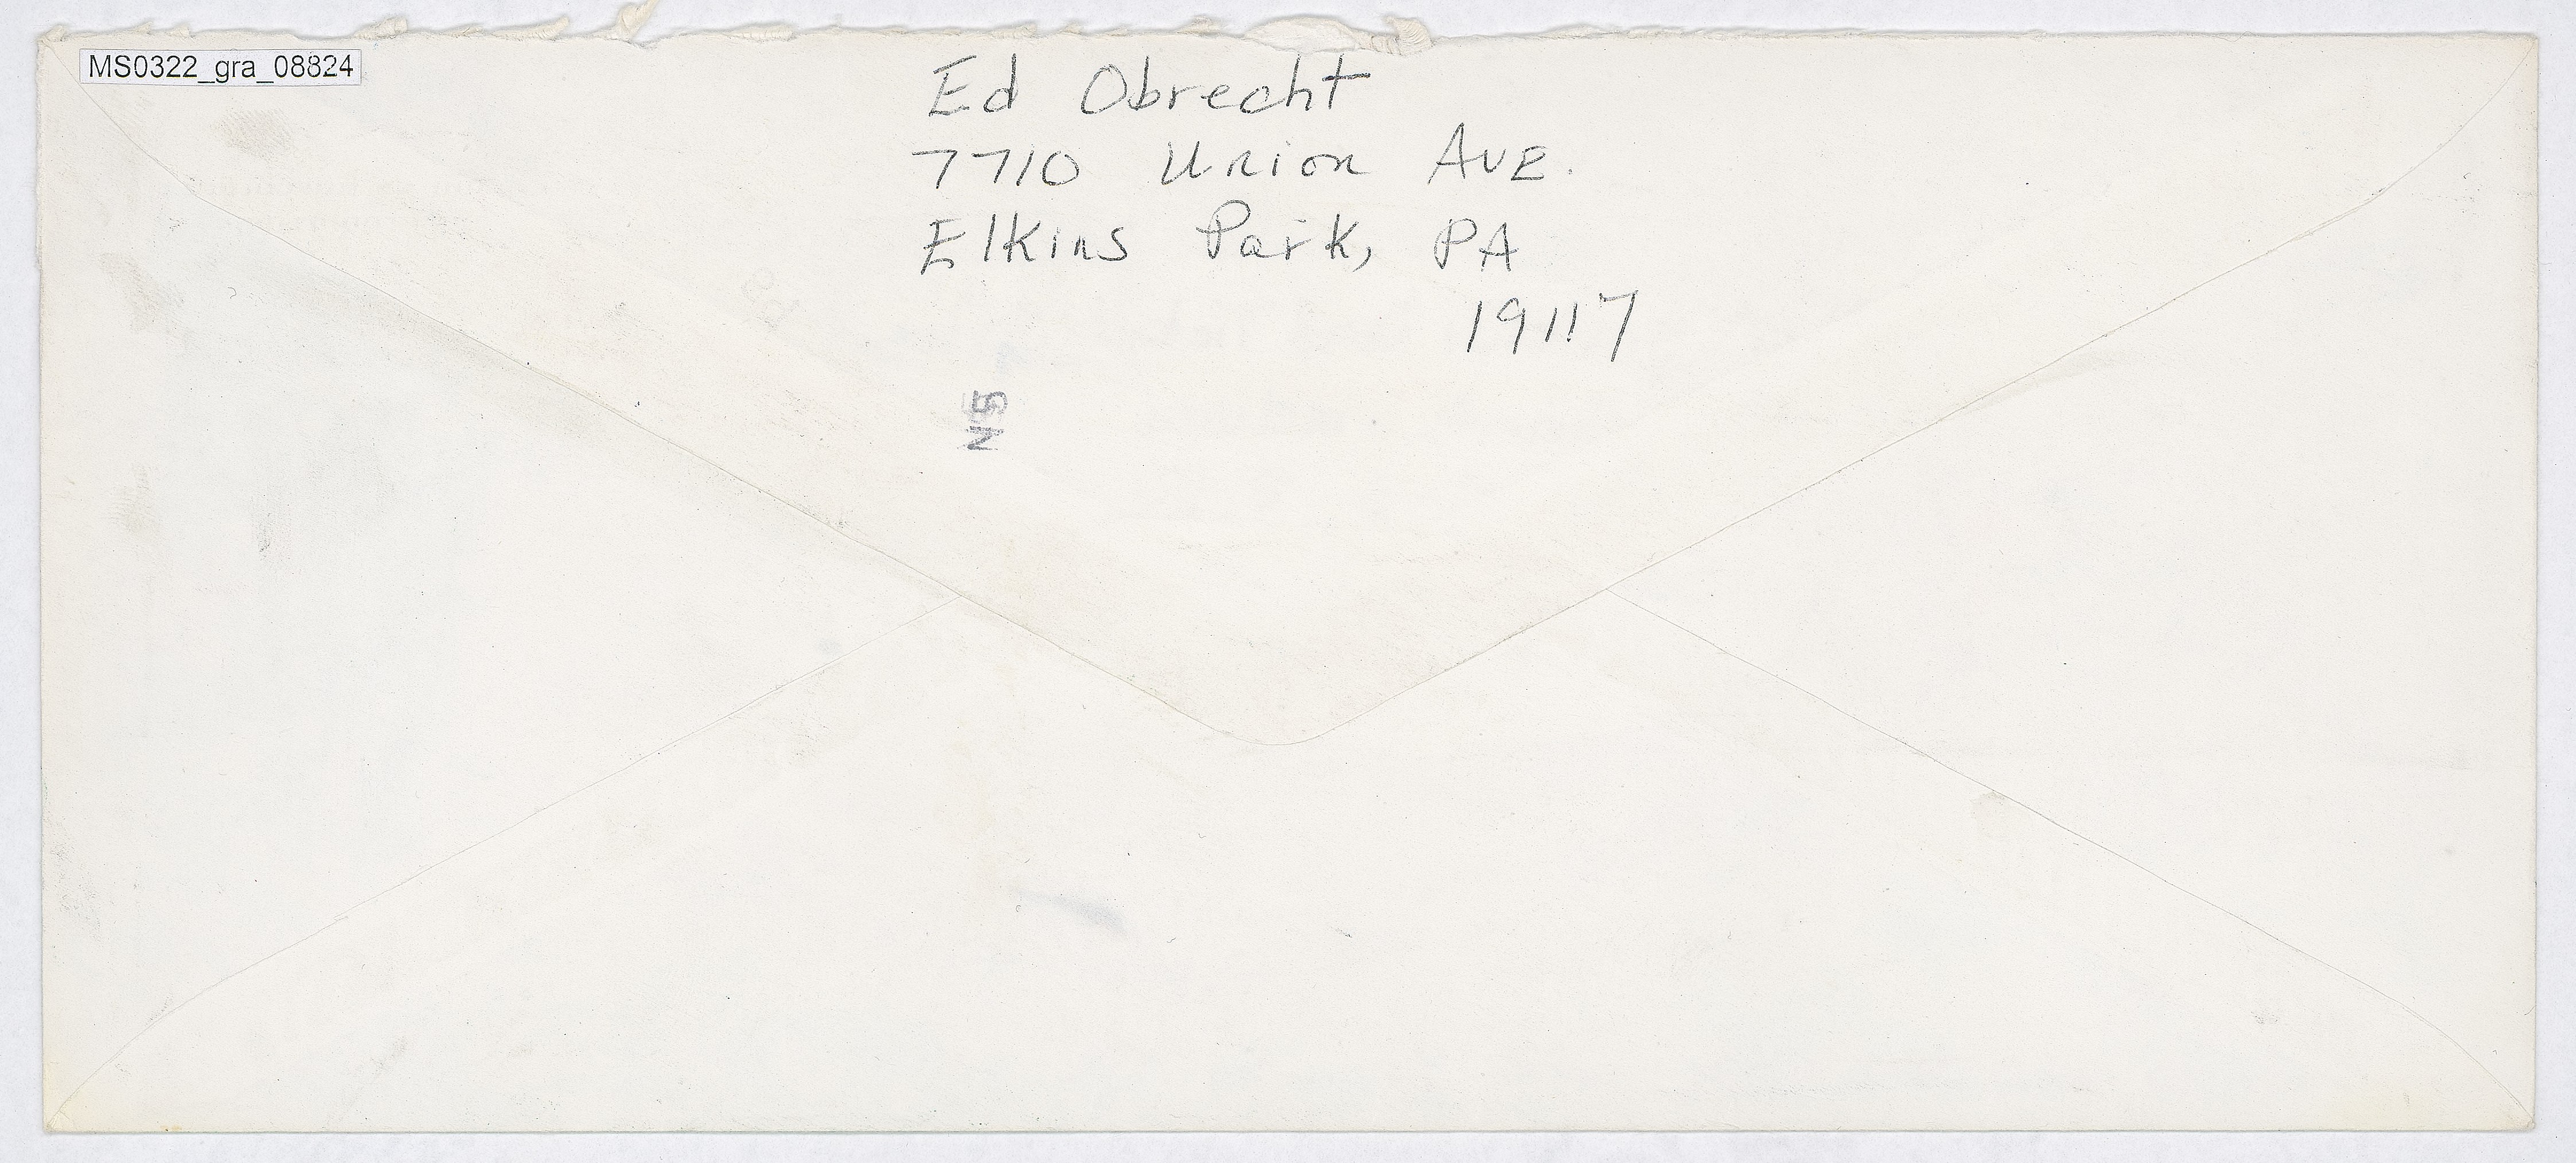 MS0322_gra_08824
Ed Obrecht
7710 Union AVE.
Elkins Park, PA
19117
N5